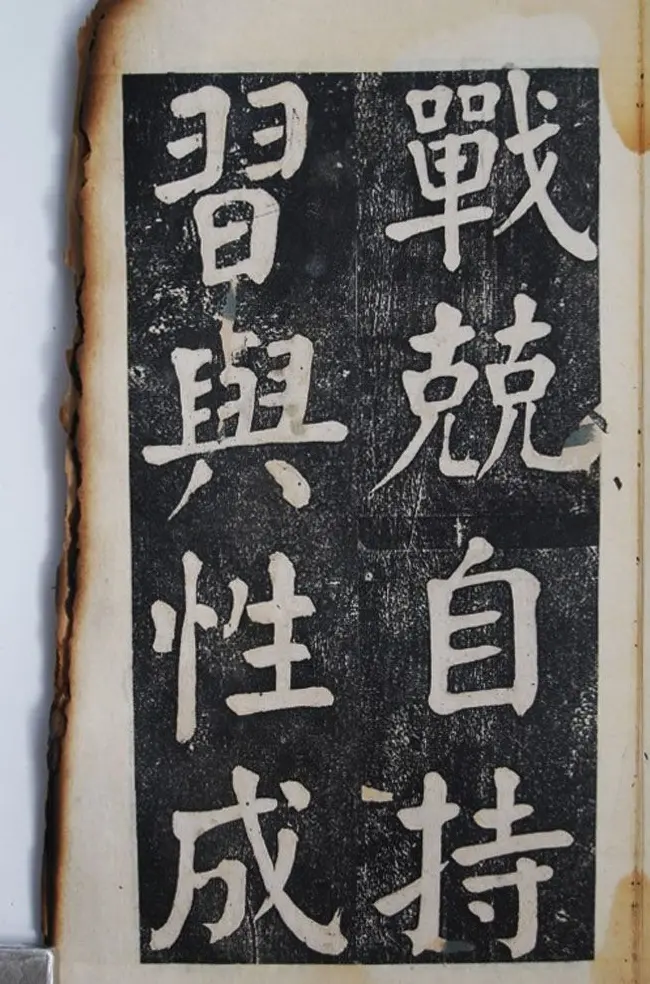 戰兢自持
習與性成